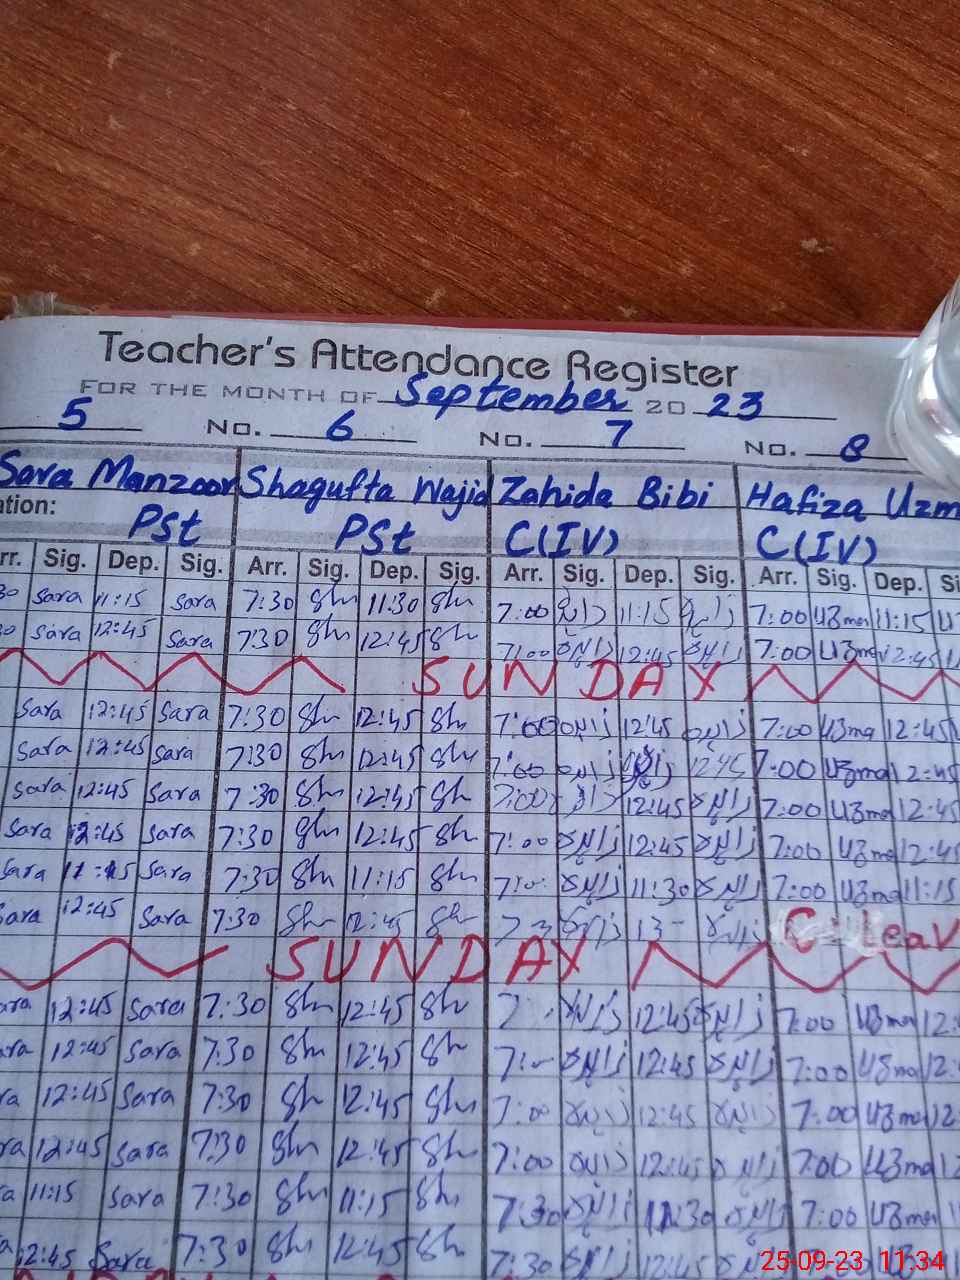 Teacher's Attendance Register
FOR THE MONTH OF September 20 23
5 No. 6 No. 7 No. 8
Sara Manzoor Shagufta Wajid Zahida Bibi Hafiza Uzm
ation: PSt PSt C(IV) C(IV)
rr. Sig. Dep. Sig. Arr. Sig. Dep. Sig. Arr. Sig. Dep. Sig. Arr. Sig. Dep. Si
30 Sara 11:15 Sara 7:30 Sh 11:30 Sh 7:00 11:15 7:00 Uzma 11:15 U
30 Sara 12:45 Sara 7:30 Sh 12:45 Sh 7:00 زاہدہ 12:45 زاہدہ 7:00 Uzma 12:45
SUNDAY
Sara 12:45 Sara 7:30 Sh 12:45 Sh 7:00 زاہدہ 12:45 زاہدہ 7:00 Uzma 12:45
Sara 12:45 Sara 7:30 Sh 12:45 Sh 7:00 زاہدہ 12:45 7:00 Uzma 12:45
Sara 12:45 Sara 7:30 Sh 12:45 Sh 7:00 12:45 زاہدہ 7:00 Uzma 12:45
Sara 12:45 Sara 7:30 Sh 12:45 Sh 7:00 زاہدہ 12:45 زاہدہ 7:00 Uzma 12:45
Sara 11:15 Sara 7:30 Sh 11:15 Sh زاہدہ 11:30 زاہدہ 7:00 Uzma 11:15
Sara 12:45 Sara 7:30 Sh 12:45 Sh زاہدہ زاہدہ Leav
SUNDAY
ara 12:45 Sara 7:30 Sh 12:45 Sh زاہدہ 12:45 زاہدہ 7:00 Uzma 12:
ara 12:45 Sara 7:30 Sh 12:45 Sh زاہدہ 12:45 زاہدہ 7:00 Uzma 12:
ra 12:45 Sara 7:30 Sh 12:45 Sh 7:00 زاہدہ 12:45 زاہدہ 7:00 Uzma 12
ra 12:45 Sara 7:30 Sh 12:45 Sh 7:00 زاہدہ 12:45 زاہدہ 7:00 Uzma 12
ra 11:15 Sara 7:30 Sh 11:15 Sh 7:30 زاہدہ 11:30 زاہدہ 7:00 Uzma
a 12:45 Sara 7:30 Sh 12:45 Sh 7:30 زاہدہ 12:45 زاہدہ
25-09-23 11:34